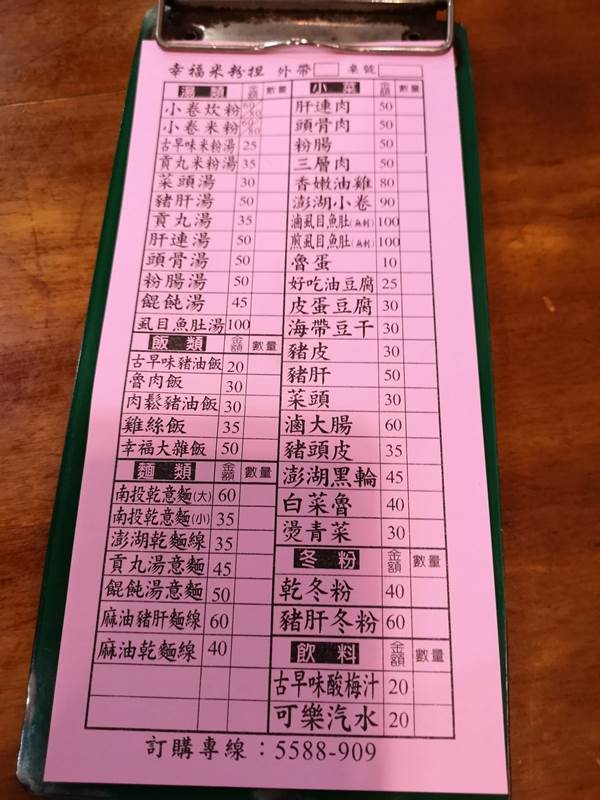 幸福米粉担 外帶 桌號
湯類 金額 數量
小卷炊粉 60/80
小卷米粉 60/80
古早味米粉湯 25
貢丸米粉湯 35
菜頭湯 30
豬肝湯 50
貢丸湯 35
肝連湯 50
頭骨湯 50
粉腸湯 50
餛飩湯 45
虱目魚肚湯 100
飯類 金額 數量
古早味豬油飯 20
魯肉飯 30
肉鬆豬油飯 30
雞絲飯 35
幸福大雜飯 50
麵類 金額 數量
南投乾意麵(大) 60
南投乾意麵(小) 35
澎湖乾麵線 35
貢丸湯意麵 45
餛飩湯意麵 50
麻油豬肝麵線 60
麻油乾麵線 40
小菜 金額 數量
肝連肉 50
頭骨肉 50
粉腸 50
三層肉 50
香嫩油雞 80
澎湖小卷 90
滷虱目魚肚(無刺) 100
煎虱目魚肚(無刺) 100
魯蛋 10
好吃油豆腐 25
皮蛋豆腐 30
海帶豆干 30
豬皮 30
豬肝 50
菜頭 30
滷大腸 60
豬頭皮 35
澎湖黑輪 45
白菜魯 40
燙青菜 30
冬粉 金額 數量
乾冬粉 40
豬肝冬粉 60
飲料 金額 數量
古早味酸梅汁 20
可樂汽水 20
訂購專線：5588-909